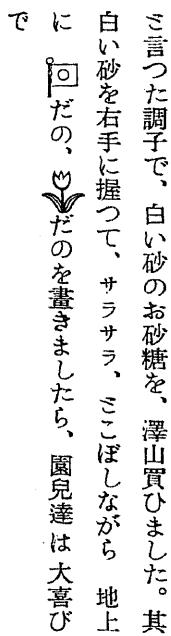 と言つた調子で、白い砂のお砂糖を、澤山買ひました。其
白い砂を右手に握つて、サラサラ、とこぼしながら 地上
に だの、だのを畫きましたら、園兒達は大喜び
で